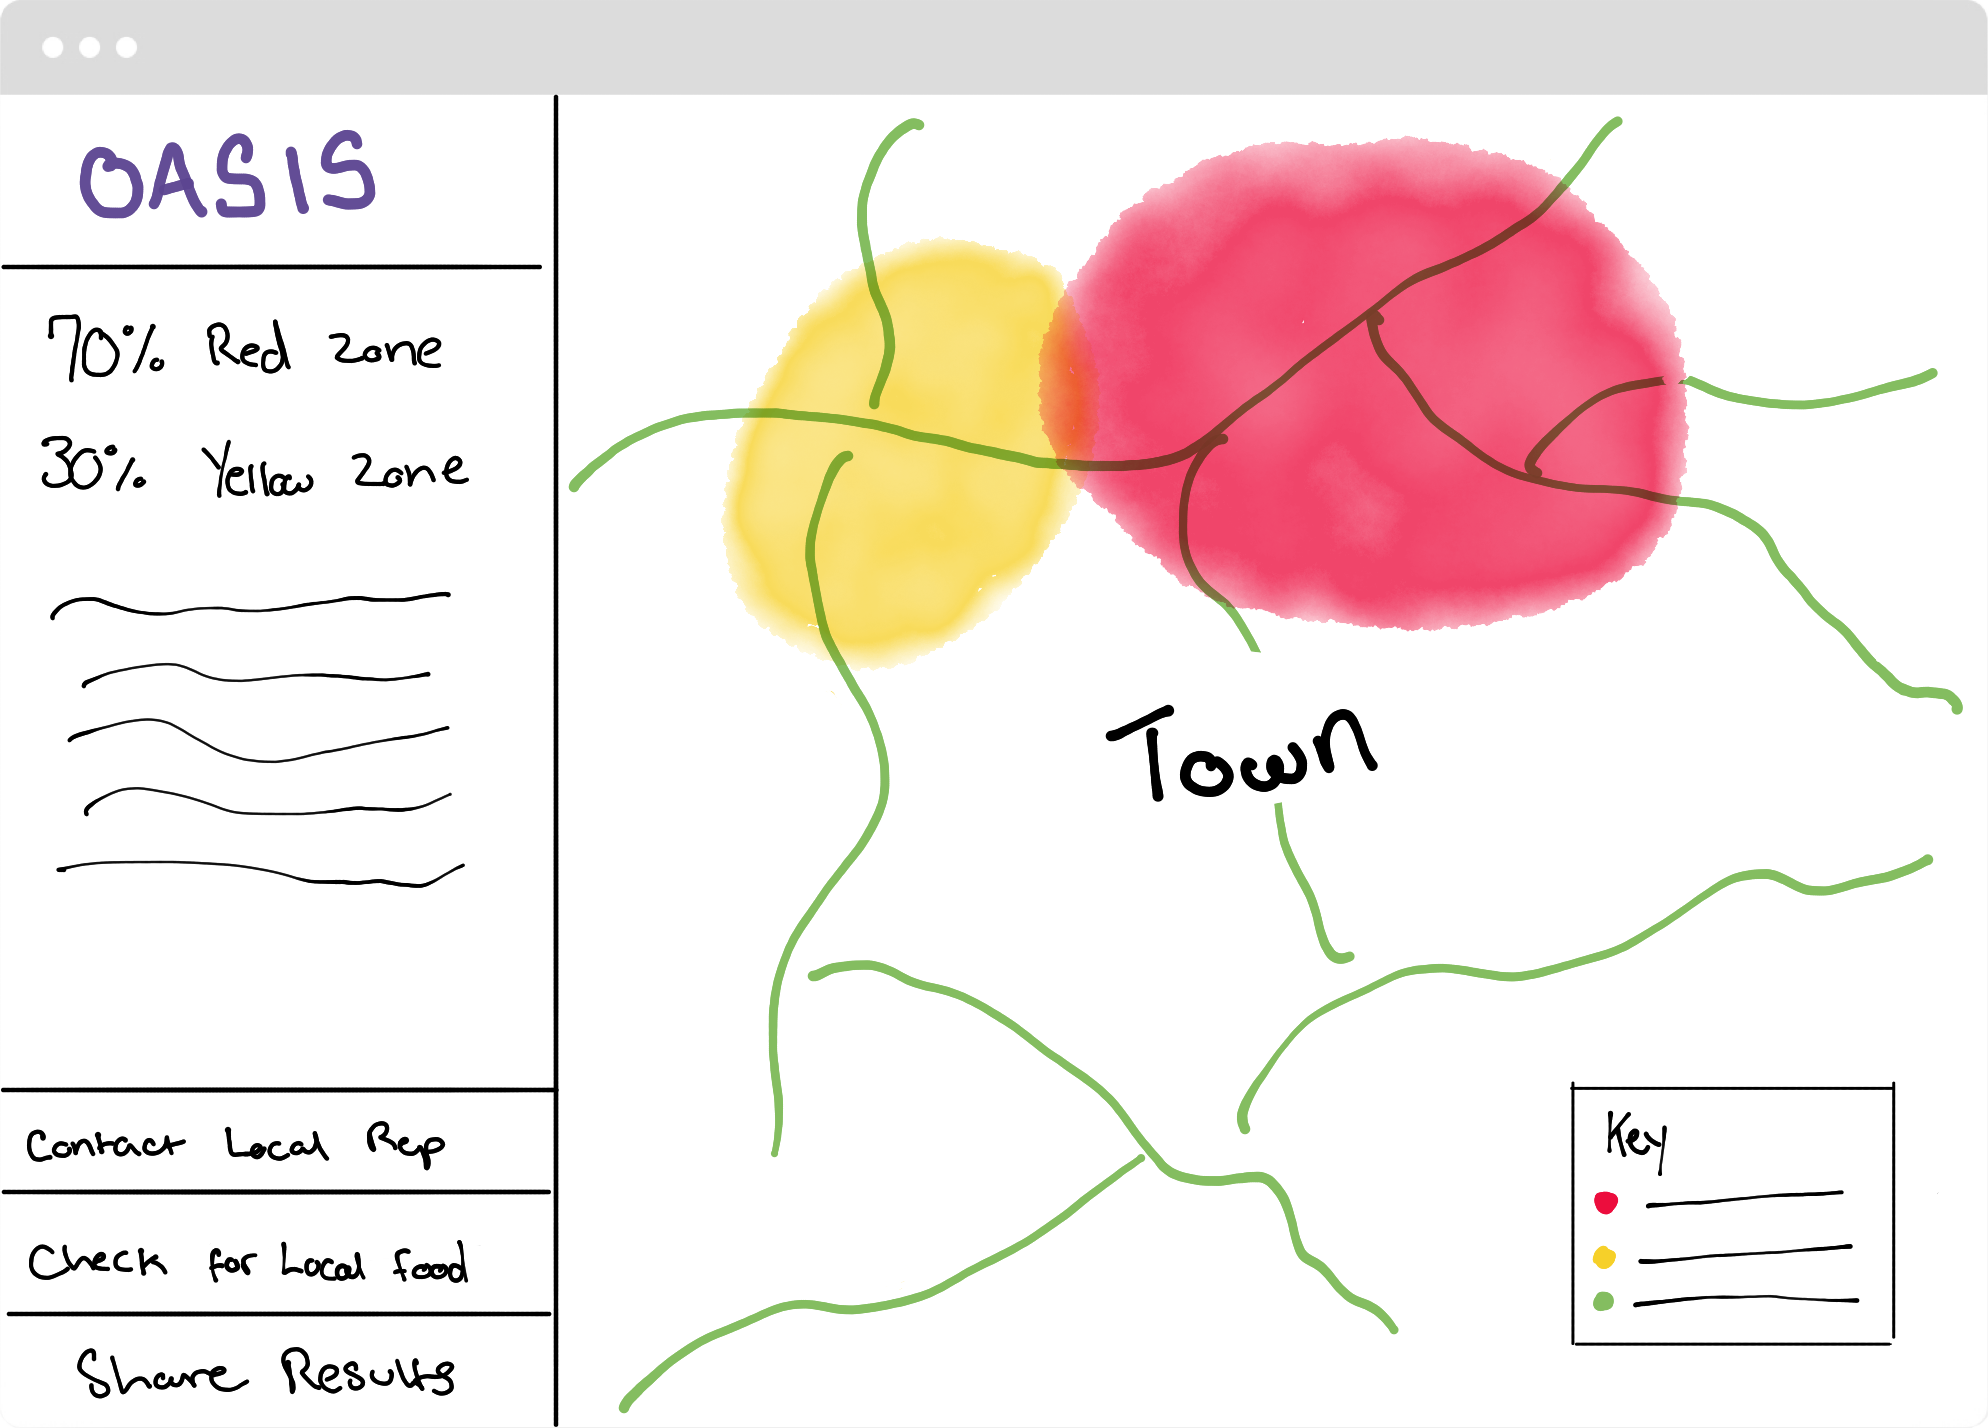 OASIS
70% Red Zone
30% Yellow Zone
Contact Local Rep
Check for Local food
Share Results
Town
Key